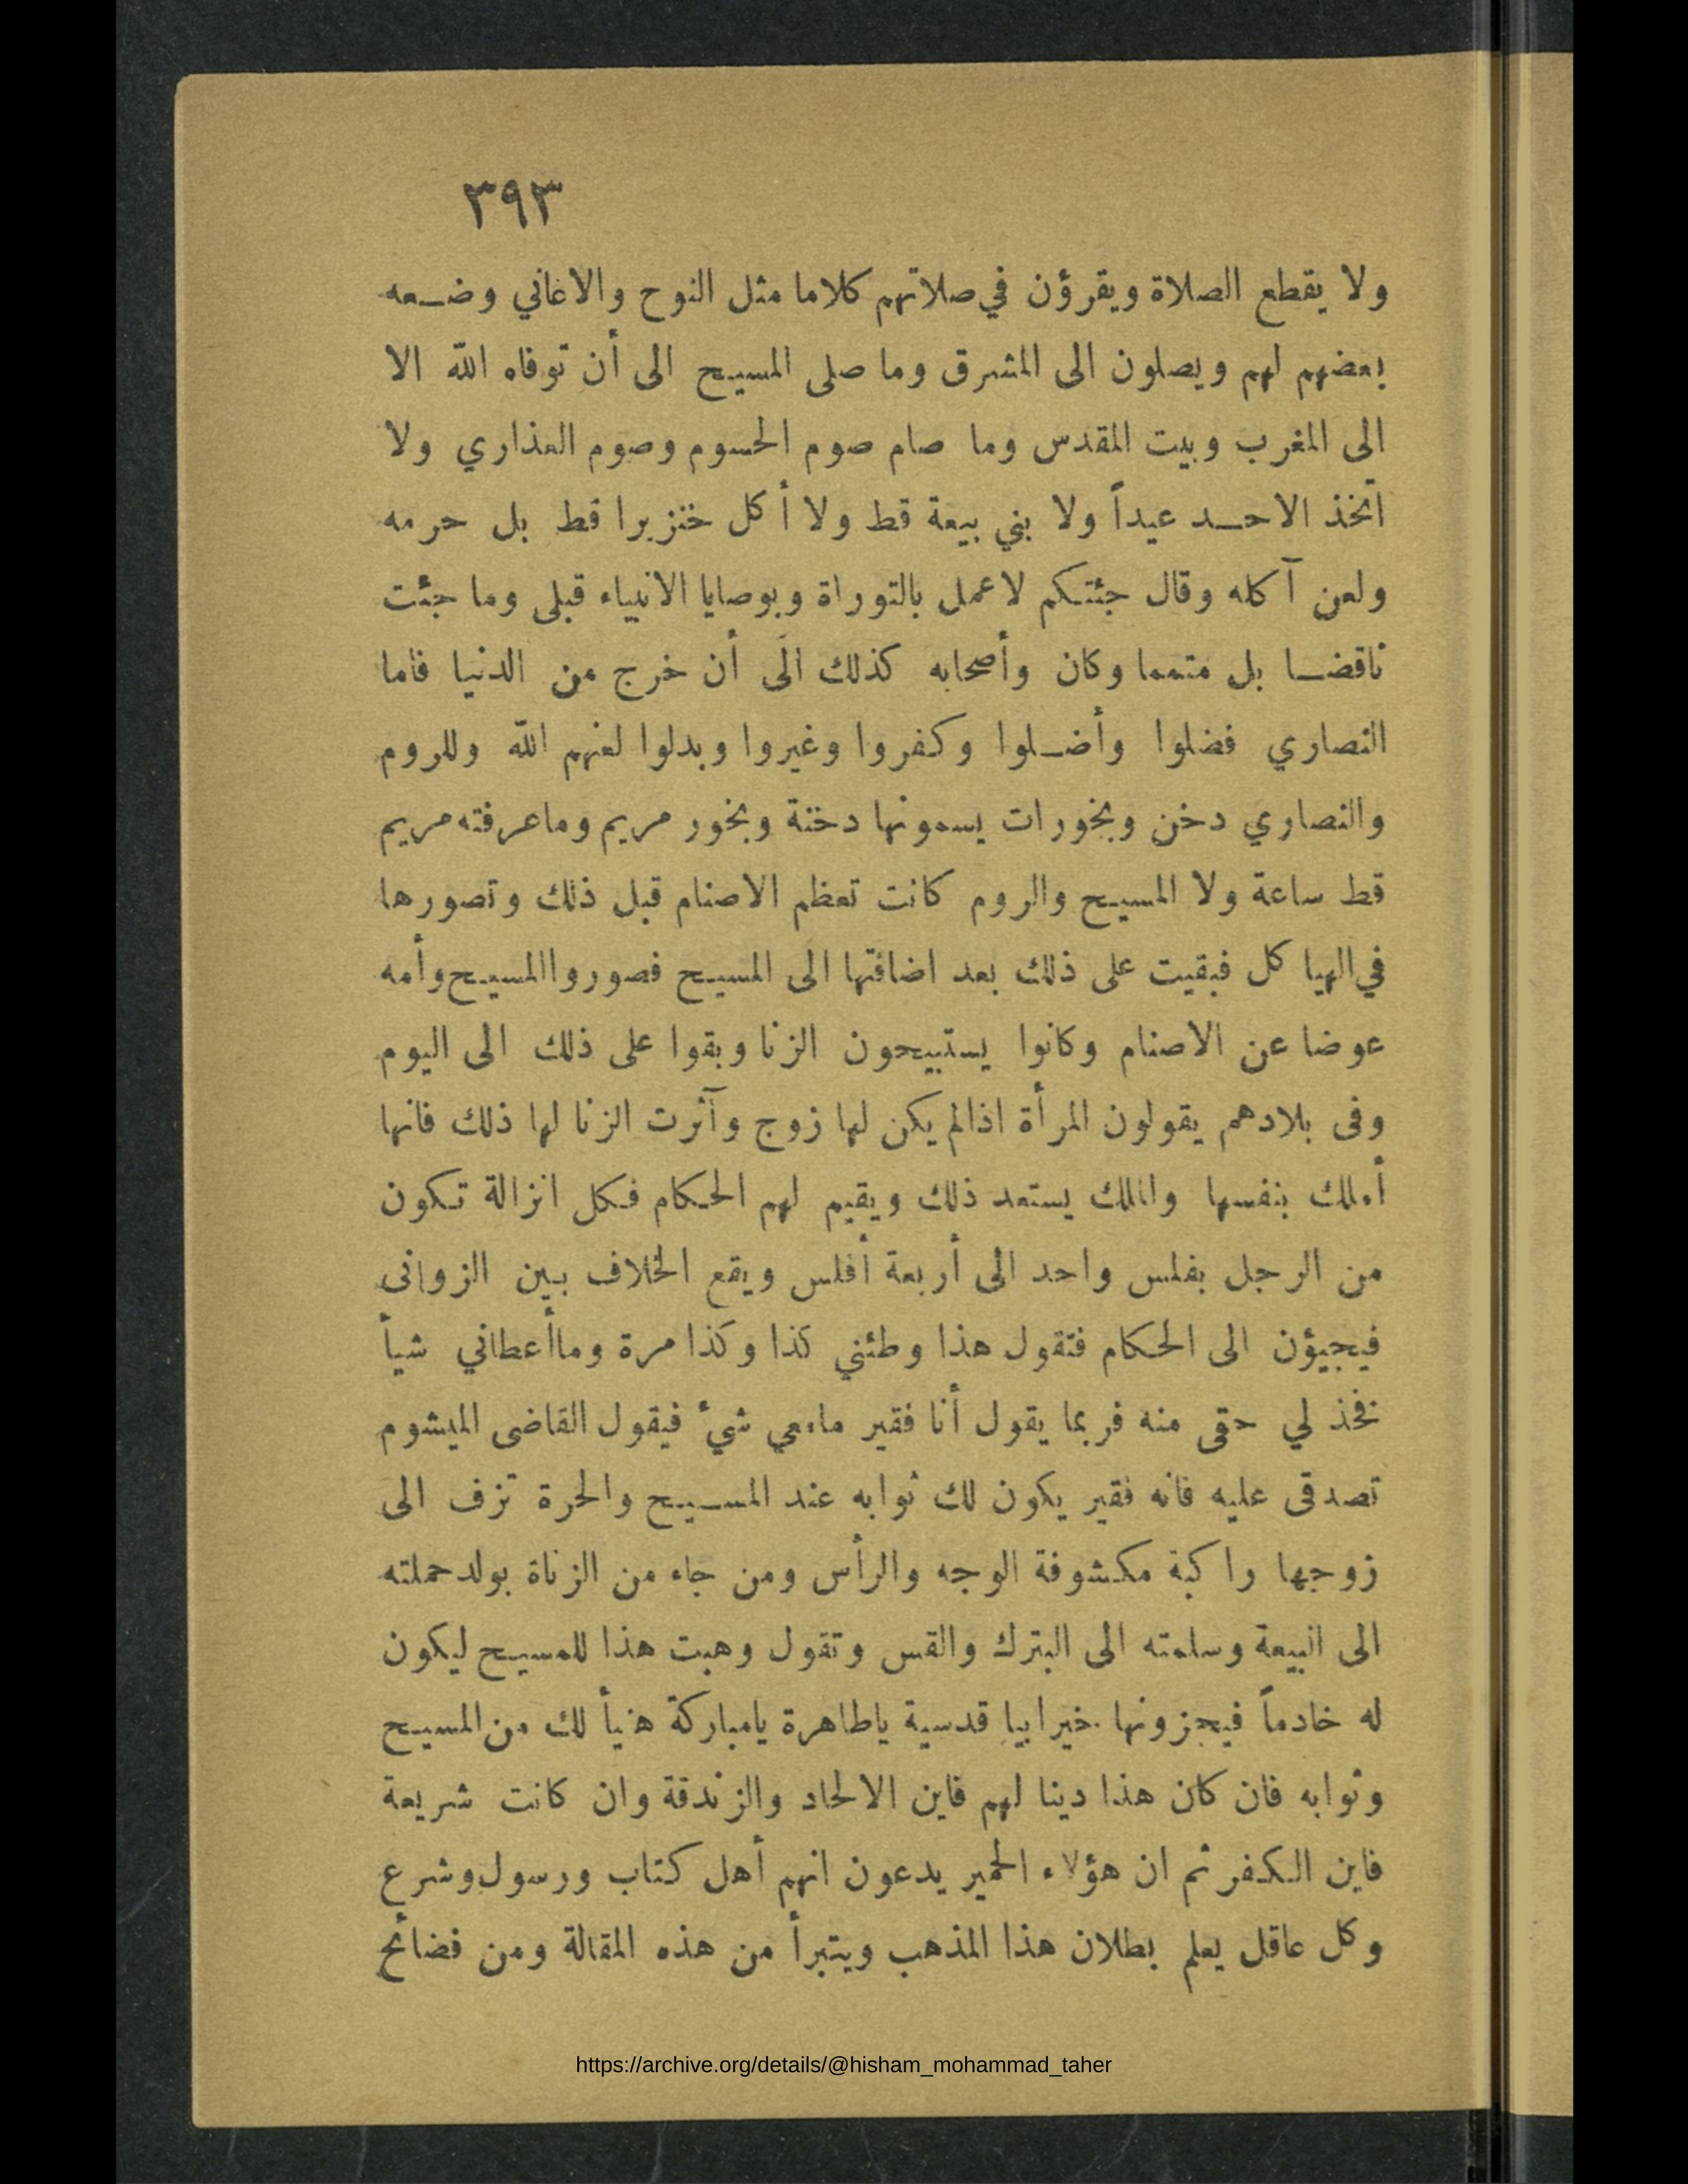 ٣٩٣
ولا يقطع الصلاة ويقرؤن في صلاتهم كلاما مثل النوح والاغاني وضعه
بعضهم لهم ويصلون الى المشرق وما صلى المسيح الى أن توفاه الله الا
الى المغرب وبيت المقدس وما صام صوم الحسوم وصوم العذاري ولا
اتخذ الاحد عيداً ولا بني بيعة قط ولا أكل خنزيرا قط بل حرمه
ولعن آكله وقال جئتكم لاعمل بالتوراة وبوصايا الانبياء قبلى وما جئت
ناقضا بل متمما وكان وأصحابه كذلك الى أن خرج من الدنيا فاما
النصاري فضلوا وأضلوا وكفروا وغيروا وبدلوا لعنهم الله وللروم
والنصاري دخن وبخورات يسمونها دخنة وبخور مريم وماعرفته مريم
قط ساعة ولا المسيح والروم كانت تعظم الاصنام قبل ذلك وتصورها
في الهياكل فبقيت على ذلك بعد اضافتها الى المسيح فصوروا المسيح وأمه
عوضا عن الاصنام وكانوا يستبيحون الزنا وبقوا على ذلك الى اليوم
وفى بلادهم يقولون المرأة اذالم يكن لها زوج وآثرت الزنا لها ذلك فانها
أملك بنفسها والملك يستعد ذلك ويقيم لهم الحكام فكل انزالة تكون
من الرجل بفلس واحد الى أربعة أفلس ويقع الخلاف بين الزوانى
فيجيؤن الى الحكام فتقول هذا وطئني كذا وكذا مرة وماأعطاني شيأ
نخذ لي حقى منه فربما يقول أنا فقير مامعي شيء فيقول القاضى الميشوم
تصدقى عليه فانه فقير يكون لك ثوابه عند المسيح والحرة تزف الى
زوجها راكبة مكشوفة الوجه والرأس ومن جاء من الزناة بولد حملته
الى البيعة وسلمته الى البترك والقس وتقول وهبت هذا للمسيح ليكون
له خادماً فيجزونها خيرا يا قدسية ياطاهرة يامباركة هنيأ لك من المسيح
وثوابه فان كان هذا دينا لهم فاين الالحاد والزندقة وان كانت شريعة
فاين الكفر ثم ان هؤلاء الحمير يدعون انهم أهل كتاب ورسول وشرع
وكل عاقل يعلم بطلان هذا المذهب ويتبرأ من هذه المقالة ومن فضائح
https://archive.org/details/@hisham_mohammad_taher